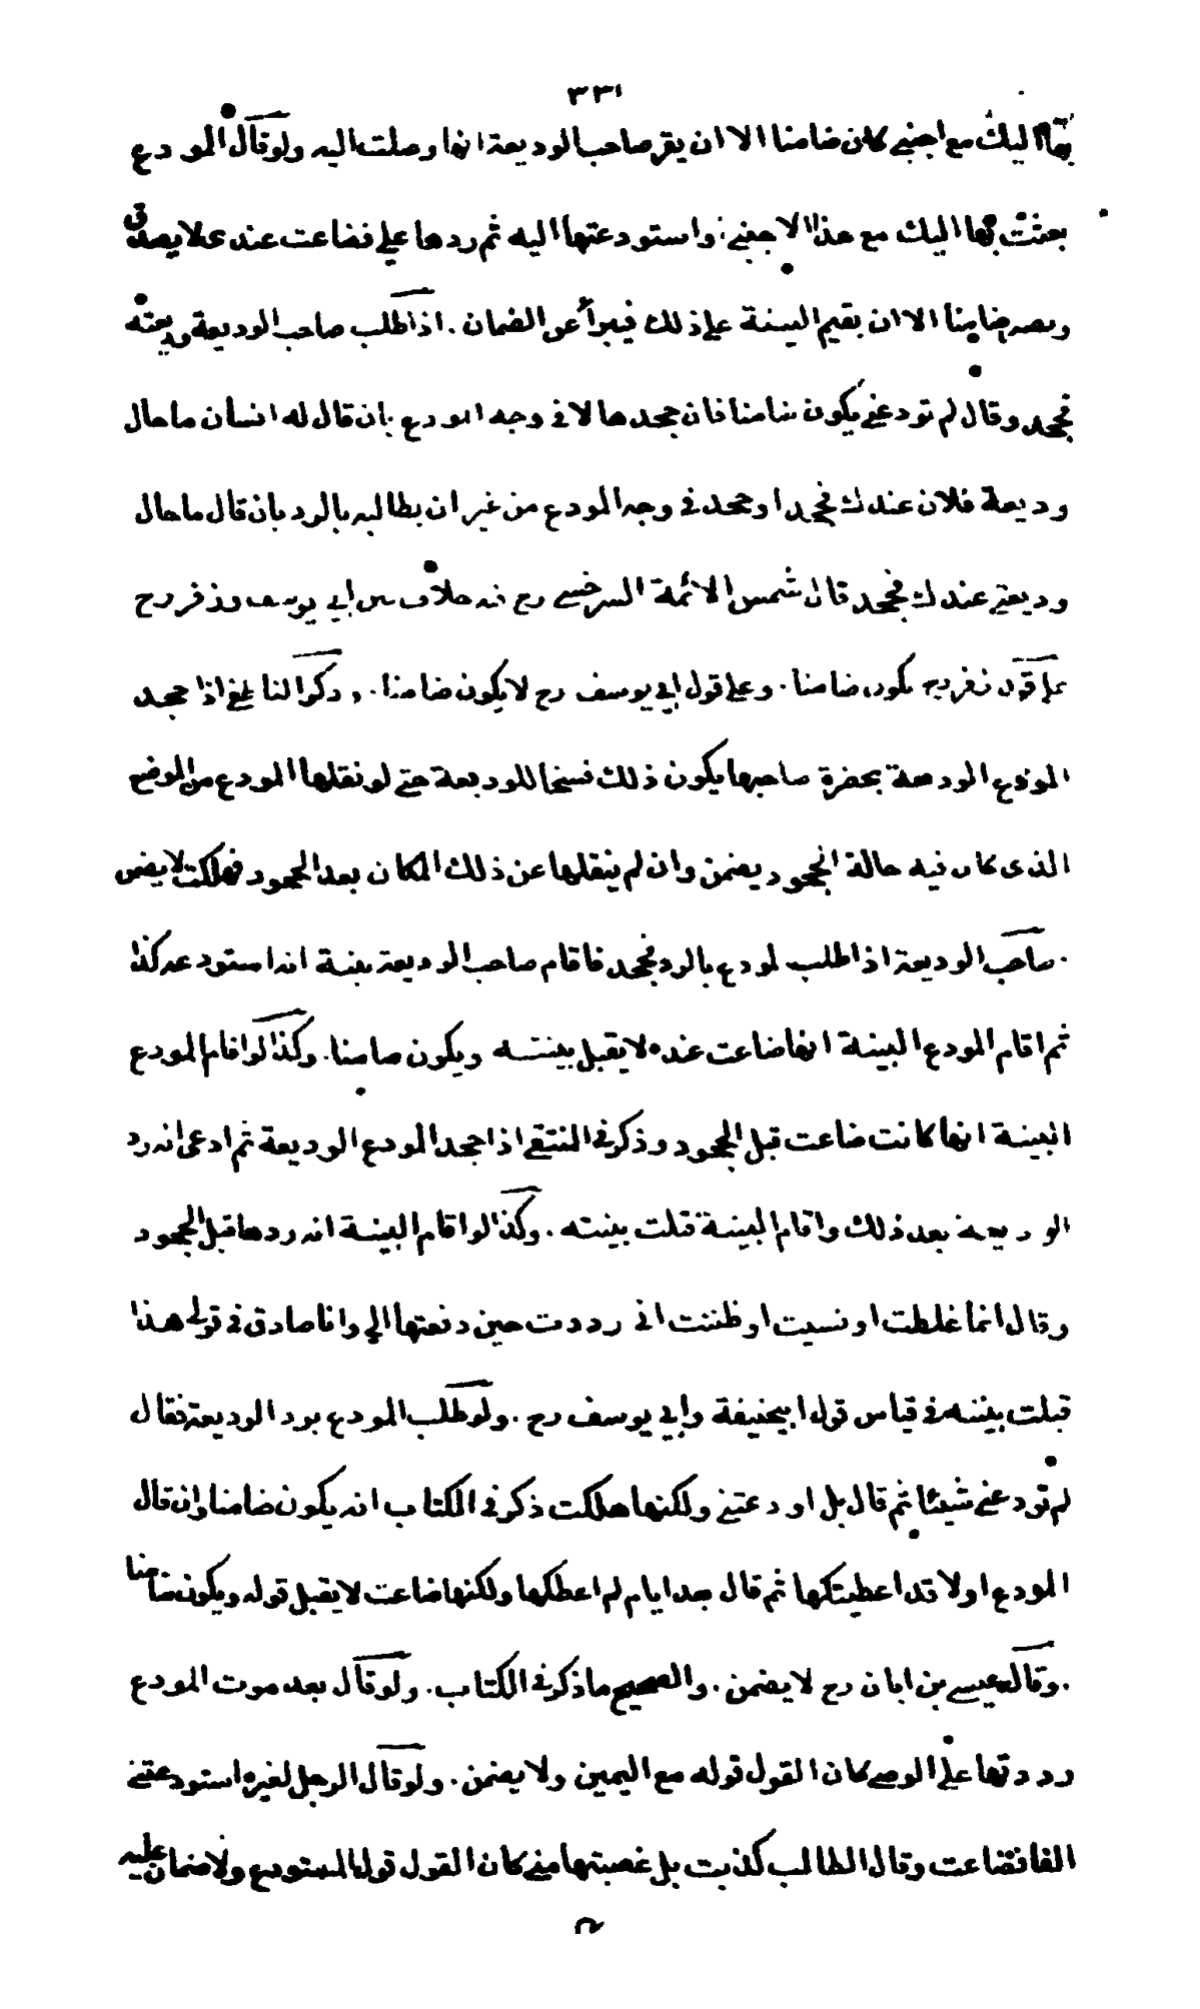 ٣٣١
بها اليك مع اجنبي كان ضامنا الا ان يقر صاحب الوديعة انها وصلت اليه ولو قال المودع
بعثت بها اليك مع هذا الاجنبي او استودعتها اليه ثم ردها علي فضاعت عندي لا يصدق
ويصير ضامنا الا ان يقيم البينة على ذلك فيبرأ عن الضمان . اذا طلب صاحب الوديعة وديعته
فجحد وقال لم تودعني يكون ضامنا فان جحدها لا في وجه المودع بان قال له انسان ما حال
وديعة فلان عندك فجحد او جحد في وجه المودع من غير ان يطالبه بالرد بان قال ما حال
وديعتي عندك فجحد قال شمس الائمة السرخسي رح فيه خلاف بين ابي يوسف وزفر رح
على قول زفر رح يكون ضامنا . وعلى قول ابي يوسف رح لا يكون ضامنا . وذكر الناطفي اذا جحد
المودع الوديعة بحضرة صاحبها يكون ذلك فسخا للوديعة حتى لو نقلها المودع من الموضع
الذي كان فيه حالة الجحود يضمن وان لم ينقلها عن ذلك المكان بعد الجحود فهلكت لا يضمن
. صاحب الوديعة اذا طلب لمودع بالرد فجحد فاقام صاحب الوديعة بينة انه استودعه كذا
ثم اقام المودع البينة انها ضاعت عنده لا يقبل بينته ويكون ضامنا . وكذا لو اقام المودع
البينة انها كانت ضاعت قبل الجحود وذكر في المنتقى اذا جحد المودع الوديعة ثم ادعى انه رد
الوديعة بعد ذلك واقام البينة قبلت بينته . وكذا لو اقام البينة انه ردها قبل الجحود
وقال انما غلطت او نسيت او ظننت اني رددت حين دفعتها الي وانا صادق في قولي هذا
قبلت بينته في قياس قول ابيحنيفة وابي يوسف رح . ولو طلب المودع برد الوديعة فقال
لم تودعني شيئا ثم قال بل اودعتني ولكنها هلكت ذكر في الكتاب انه يكون ضامنا وان قال
المودع اولا قد اعطيتكها ثم قال بعد ايام لم اعطكها ولكنها ضاعت لا يقبل قوله ويكون ضامنا
. وقال عيسى بن ابان رح لا يضمن . والصحيح ما ذكر في الكتاب . ولو قال بعد موت المودع
رددتها على الوصي كان القول قوله مع اليمين ولا يضمن . ولو قال الرجل لغيره استودعتني
الفا فضاعت وقال الطالب كذبت بل غصبتها مني كان القول قول المستودع ولا ضمان عليه